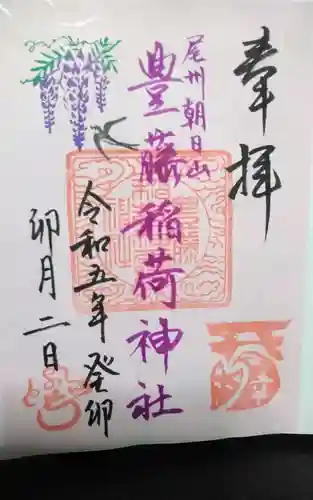 奉拝
尾州朝日山
豊藤稲荷神社
令和五年癸卯
卯月二日